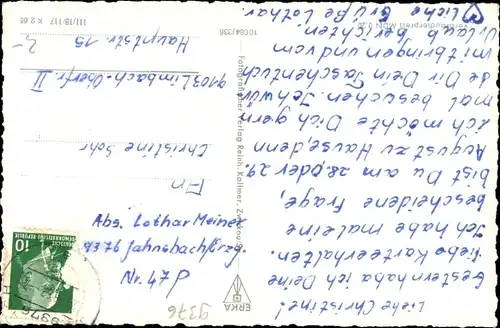 Liebe Christine!
Gestern habe ich Deine
liebe Karte erhalten.
Ich habe mal eine
bescheidene Frage,
bist Du am 28. oder 29.
August zu Hause, denn
ich möchte Dich gern
mal besuchen. Ich wür
de Dir Dein Taschentuch
mitbringen und vom
Urlaub berichten.
Liebe Grüße Lothar.
Abs. Lothar Meiner
9376 Jahnsbach/Erzg.
Nr. 47
An
Christine Sohr
9103 Limbach-Oberfr. II
Hauptstr. 15
ERIKA
Fotografischer Verlag Reinh. Kallmer, Zwickau
10084/336
Verbraucherpreis MDN 0,20
III/18/117 K 2 65
DEUTSCHE
DEMOKRATISCHE REPUBLIK
10
9376
9376